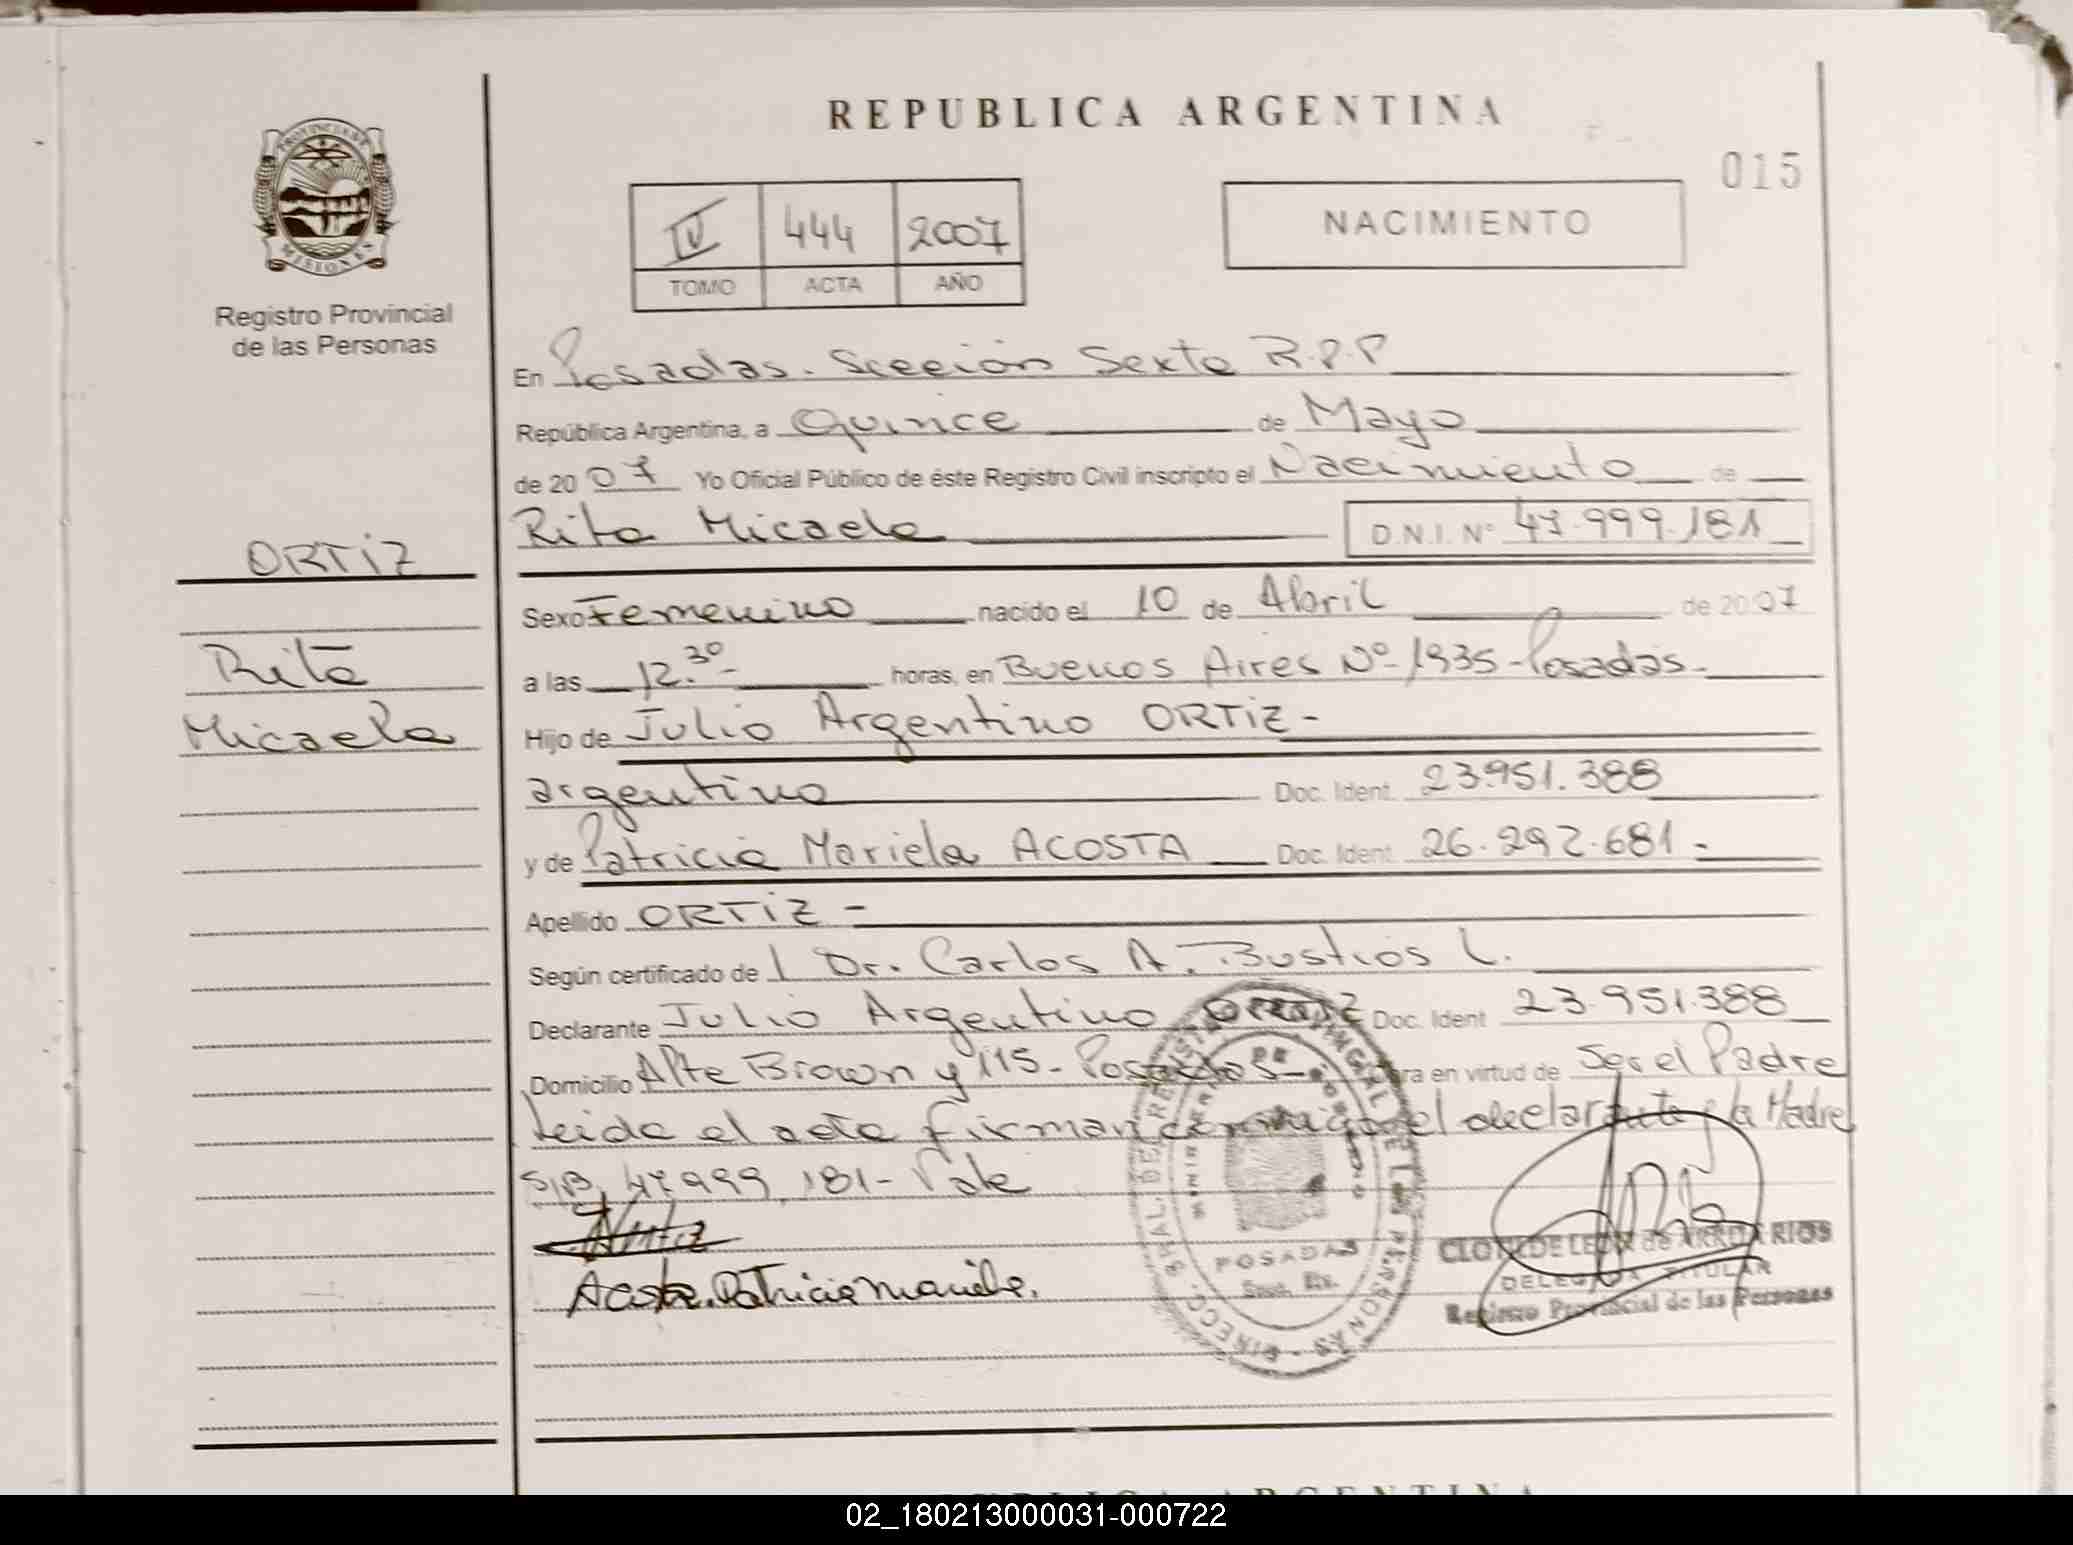 REPUBLICA ARGENTINA
015
PROVINCIA DE
MISIONES
Registro Provincial
de las Personas
IV 444 2007
TOMO ACTA AÑO
NACIMIENTO
En Posadas. Sección Sexta R.P.P
República Argentina, a Quince de Mayo
de 2007 Yo Oficial Público de éste Registro Civil inscripto el Nacimiento de
Rita Micaela D.N.I. Nº 47.999.181
ORTIZ
Rita
Micaela
Sexo Femenino nacido el 10 de Abril de 2007
a las 12.30- horas, en Buenos Aires Nº 1935-Posadas-
Hijo de Julio Argentino ORTIZ-
argentino Doc. Ident. 23.951.388
y de Patricia Mariela ACOSTA Doc. Ident. 26.292.681-
Apellido ORTIZ-
Según certificado de Dr. Carlos A. Bustios L.
Declarante Julio Argentino ORTIZ Doc. Ident 23.951.388
Domicilio Alte Brown y 115- Posadas- en virtud de Ser el Padre
Leida el acta firman conmigo el declarante y la Madre
S/B, 47.999.181- Vale
Acosta. Patricia Mariela.
POSADAS
DELEGADA TITULAR
Registro Provincial de las Personas
REPUBLICA ARGENTINA
02_180213000031-000722